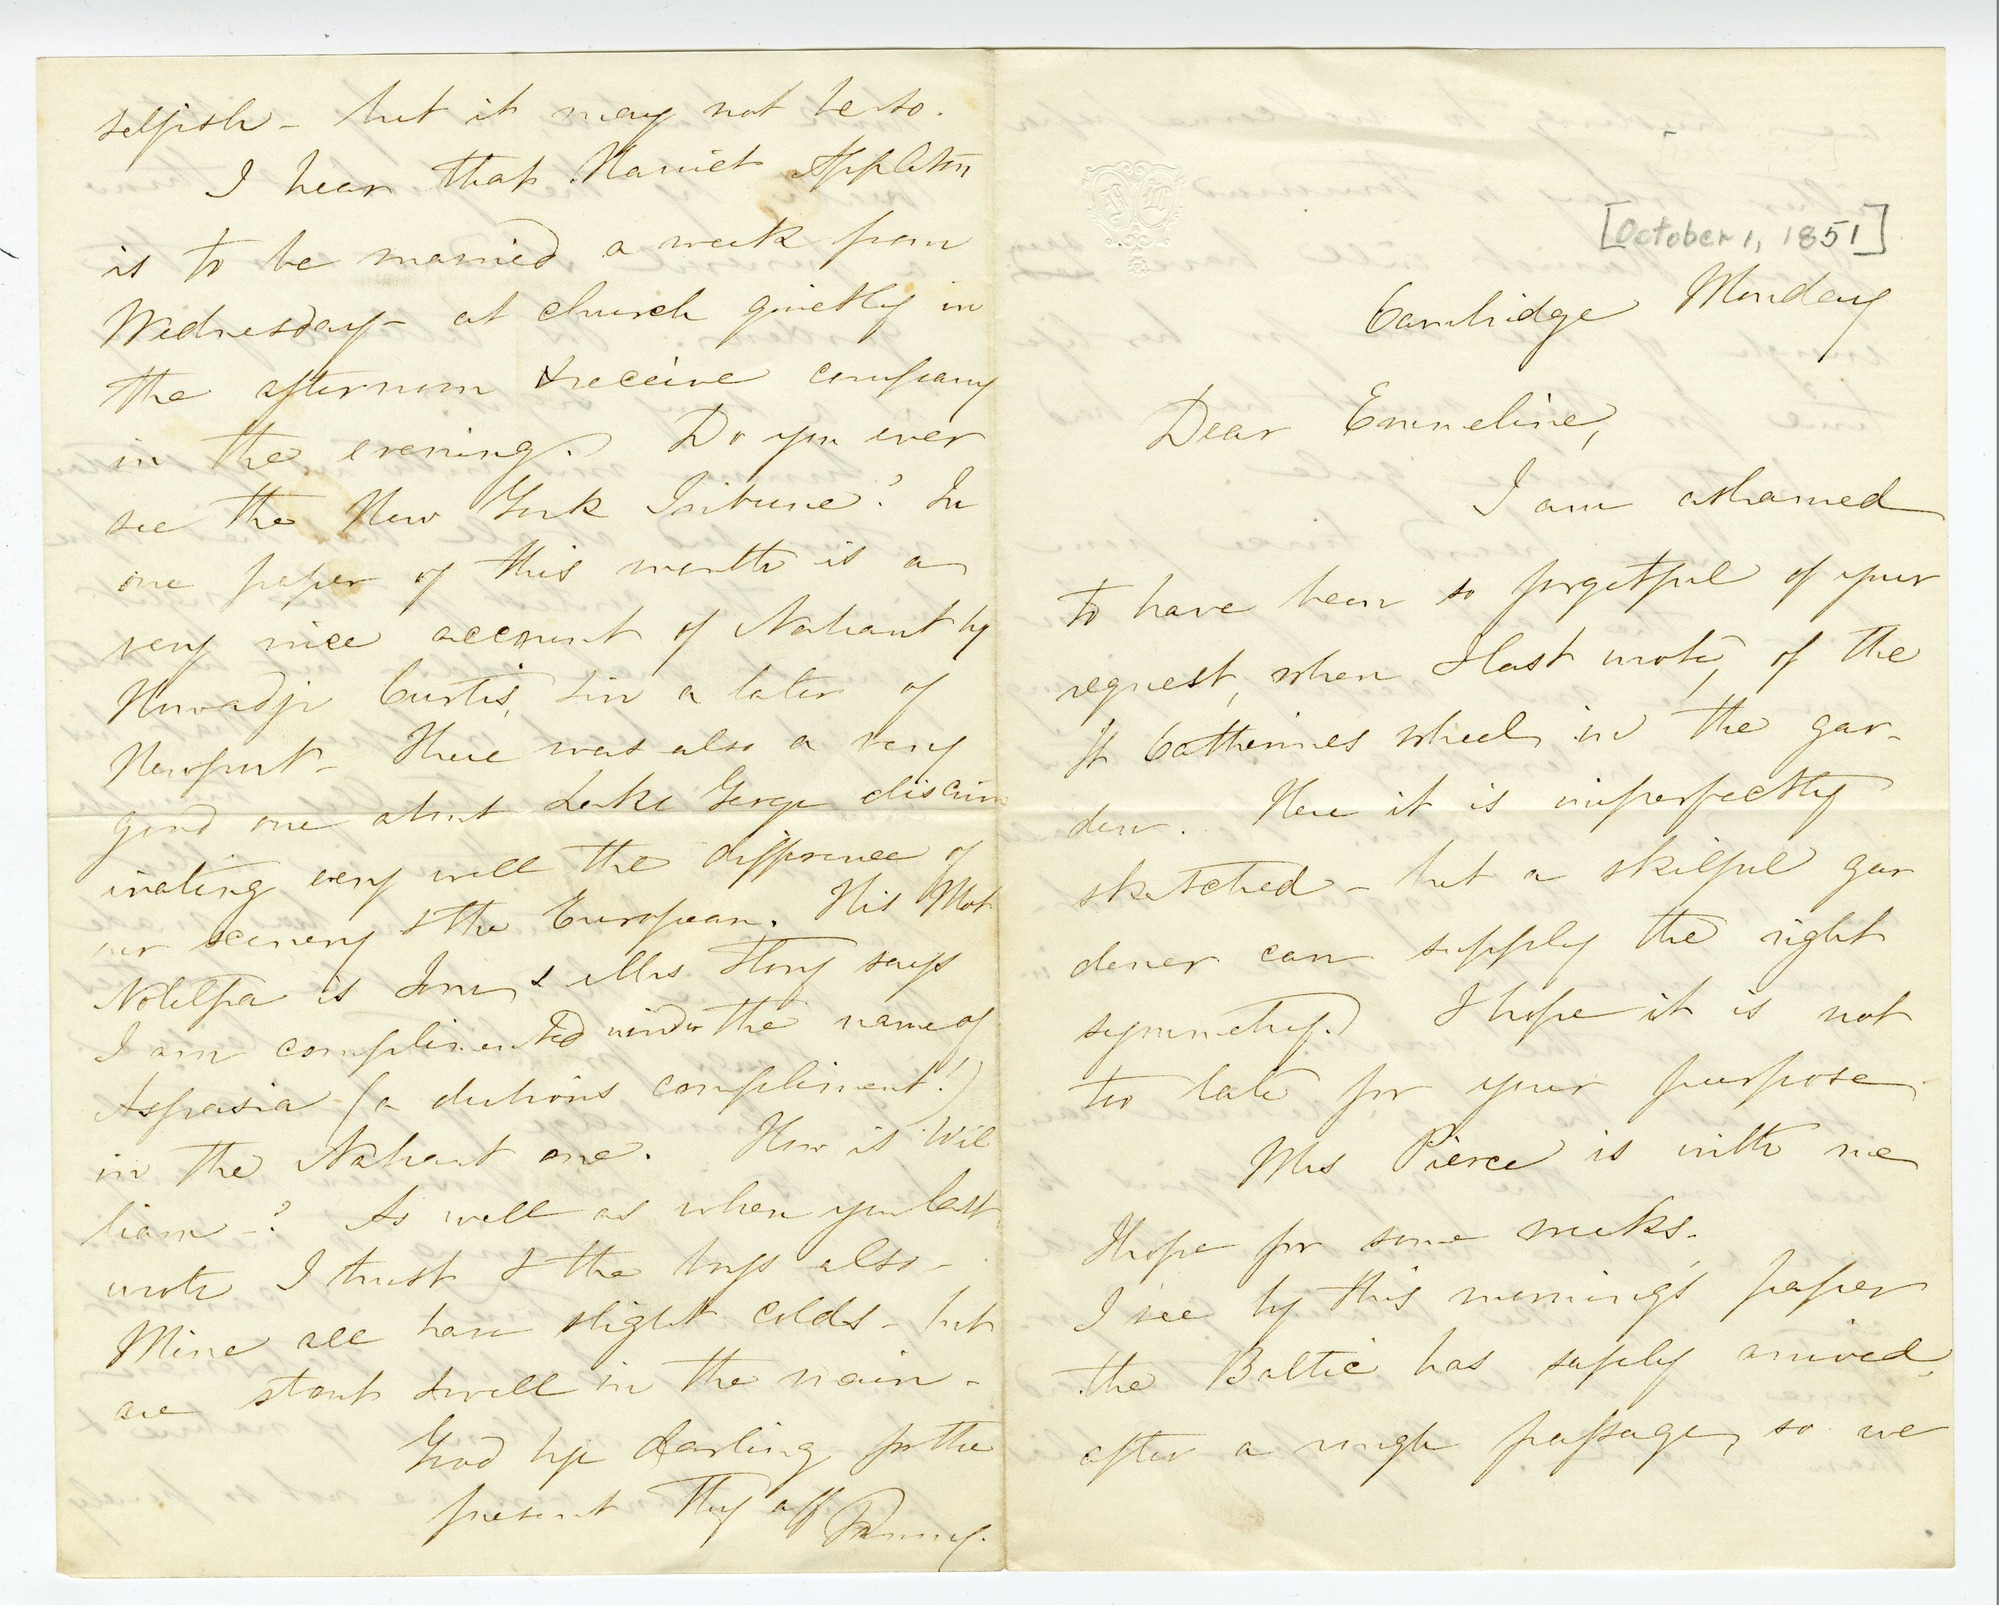 [October 1, 1851]
Cambridge Monday
Dear Emmeline,
I am ashamed
to have been so forgetful of your
request, when I last wrote, of the
St Catherines wheel in the gar-
den. Here it is imperfectly
sketched - but a skilful gar
dener can supply the right
symmetry. I hope it is not
too late for your purpose.
Mrs Pierce is with me
I hope for some weeks.
I see by this morning's paper
the Baltic has safely arrived,
after a rough passage, so we
selfish - but it may not be so.
I hear that Harriet Appleton
is to be married a week from
Wednesday - at church quietly in
the afternoon & receive company
in the evening. Do you ever
see the New York Tribune? In
one paper of this month is a
very nice account of Nahant by
Howadji Curtis, & in a later of
Newport - There was also a very
good one about Lake George discrim
inating very well the difference of
our scenery & the European. His Mot
Notelpa is Tom, & Mrs Story says
I am complimented under the name of
Aspasia (a dubious compliment!)
in the Nahant one. How is Wil
liam -? As well as when you last
wrote I trust & the boys also -
Mine all have slight colds - but
are stout & well in the main -
Good bye darling for the
present Thy aff Fanny.